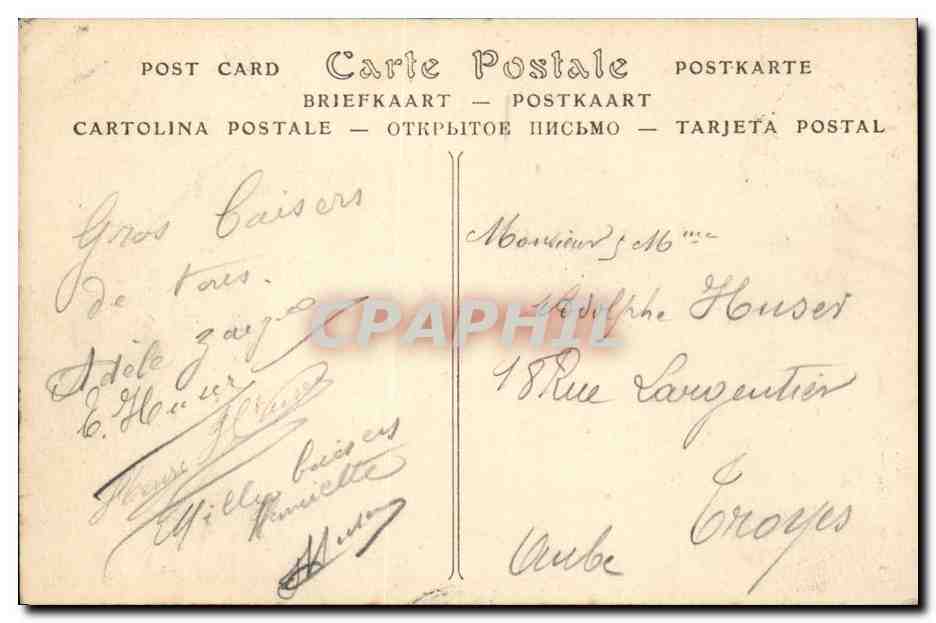 POST CARD Carte Postale POSTKARTE
BRIEFKAART — POSTKAART
CARTOLINA POSTALE — ОТКРЫТОЕ ПИСЬМО — TARJETA POSTAL
Gros Baisers
de tous.
Adèle
E. Huser
Mille baisers
Henriette
Huser
Monsieur & Mme
Adolphe Huser
18 Rue Largentier
Troyes
Aube
CPAPHIL